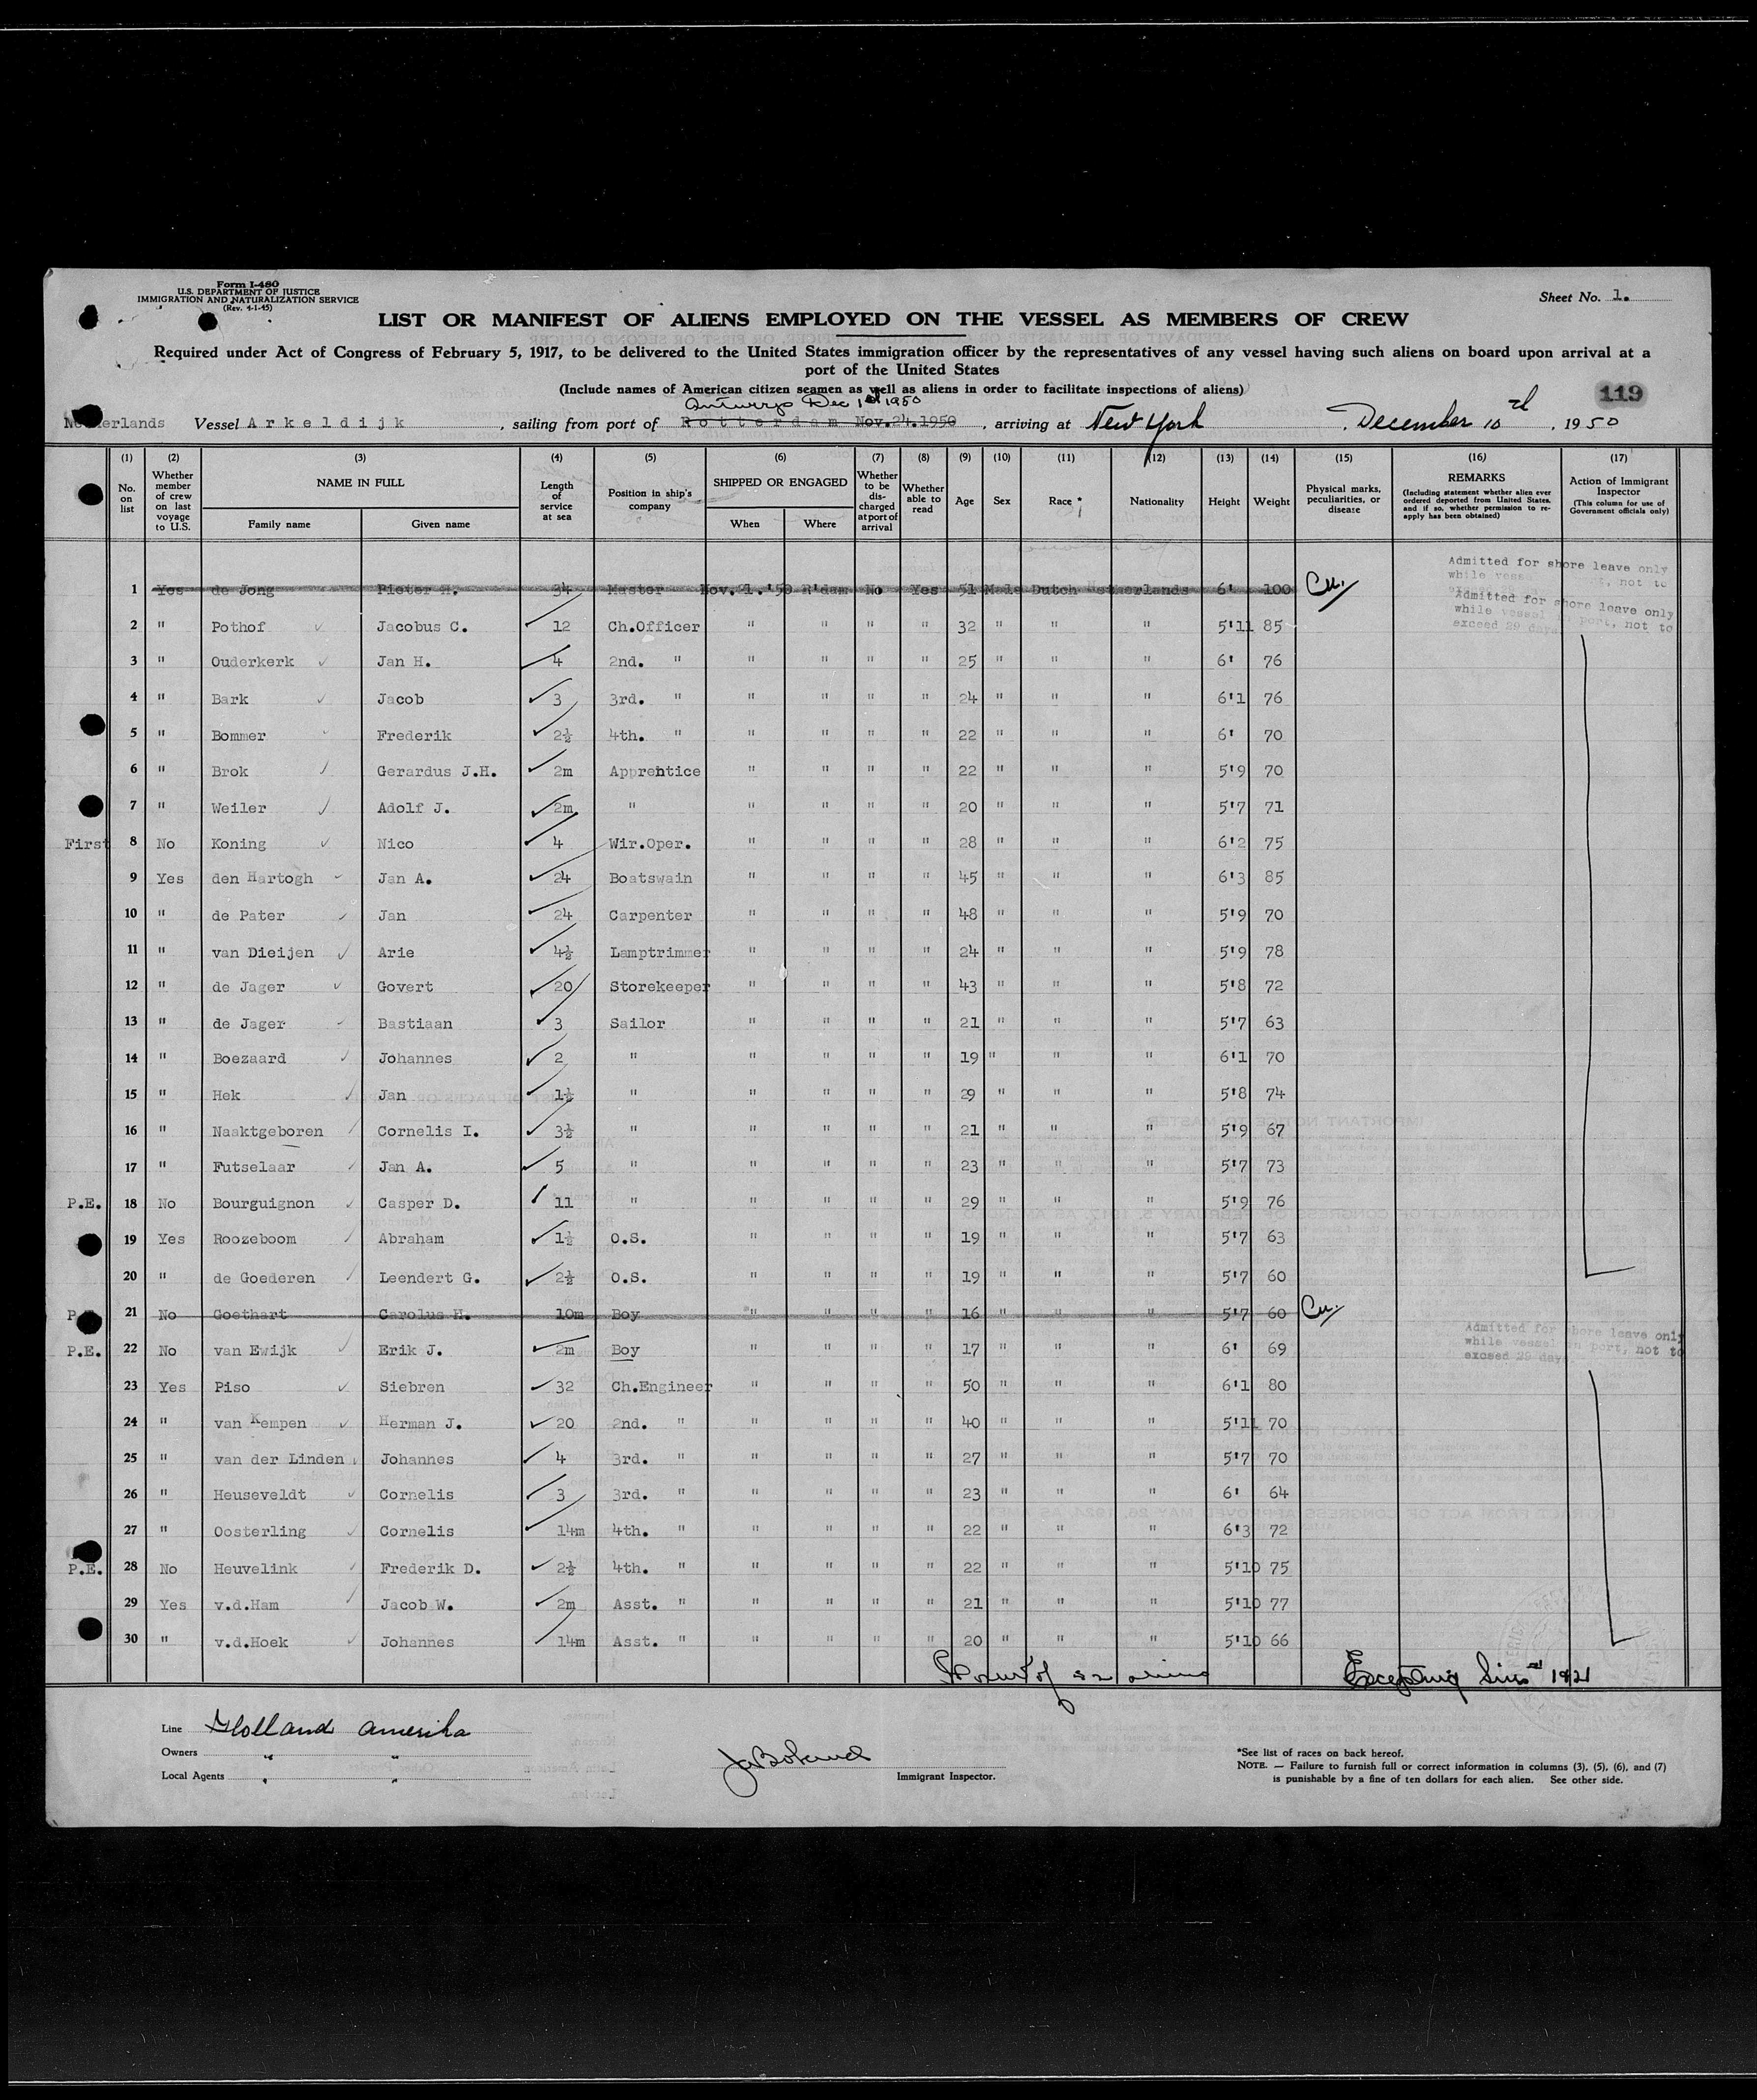 Form I-480
U.S. DEPARTMENT OF JUSTICE
IMMIGRATION AND NATURALIZATION SERVICE
(Rev. 4-1-45)
Sheet No. 1.
LIST OR MANIFEST OF ALIENS EMPLOYED ON THE VESSEL AS MEMBERS OF CREW
Required under Act of Congress of February 5, 1917, to be delivered to the United States immigration officer by the representatives of any vessel having such aliens on board upon arrival at a
port of the United States
(Include names of American citizen seamen as well as aliens in order to facilitate inspections of aliens)
119
Antwerp Dec 1st 1950
Netherlands Vessel Arkeldijk, sailing from port of Rotterdam Nov.24.1950, arriving at New York, December 10th, 1950
(1) (2) (3) (4) (5) (6) (7) (8) (9) (10) (11) (12) (13) (14) (15) (16) (17)
No. on list
Whether member of crew on last voyage to U.S.
NAME IN FULL
Family name Given name
Length of service at sea
Position in ship's company
SHIPPED OR ENGAGED
When Where
Whether to be discharged at port of arrival
Whether able to read
Age Sex Race * Nationality Height Weight
Physical marks, peculiarities, or disease
REMARKS
(Including statement whether alien ever ordered deported from United States, and if so, whether permission to re-apply has been obtained)
Action of Immigrant Inspector
(This column for use of Government officials only)
Admitted for shore leave only
while vessel , not to
1 Yes de Jong Pieter H. 34 Master Nov.21.'50 R'dam No Yes 51 Male Dutch Netherlands 6' 100 Cu.
Admitted for shore leave only
while vessel in port, not to
exceed 29 days
2 " Pothof Jacobus C. 12 Ch.Officer " " " " 32 " " " 5'11 85
3 " Ouderkerk Jan H. 4 2nd. " " " " " 25 " " " 6' 76
4 " Bark Jacob 3 3rd. " " " " " 24 " " " 6'1 76
5 " Bommer Frederik 2½ 4th. " " " " " 22 " " " 6' 70
6 " Brok Gerardus J.H. 2m Apprentice " " " " 22 " " " 5'9 70
7 " Weiler Adolf J. 2m " " " " " 20 " " " 5'7 71
First 8 No Koning Nico 4 Wir.Oper. " " " " 28 " " " 6'2 75
9 Yes den Hartogh Jan A. 24 Boatswain " " " " 45 " " " 6'3 85
10 " de Pater Jan 24 Carpenter " " " " 48 " " " 5'9 70
11 " van Dieijen Arie 4½ Lamptrimmer " " " " 24 " " " 5'9 78
12 " de Jager Govert 20 Storekeeper " " " " 43 " " " 5'8 72
13 " de Jager Bastiaan 3 Sailor " " " " 21 " " " 5'7 63
14 " Boezaard Johannes 2 " " " " " 19 " " " 6'1 70
15 " Hek Jan 1½ " " " " " 29 " " " 5'8 74
16 " Naaktgeboren Cornelis I. 3½ " " " " " 21 " " " 5'9 67
17 " Futselaar Jan A. 5 " " " " " 23 " " " 5'7 73
P.E. 18 No Bourguignon Casper D. 11 " " " " " 29 " " " 5'9 76
19 Yes Roozeboom Abraham 1½ O.S. " " " " 19 " " " 5'7 63
20 " de Goederen Leendert G. 2½ O.S. " " " " 19 " " " 5'7 60
21 No Goethart Carolus H. 10m Boy " " " " 16 " " " 5'7 60 Cu.
Admitted for shore leave only
while vessel in port, not to
exceed 29 days
P.E. 22 No van Ewijk Erik J. 2m Boy " " " " 17 " " " 6' 69
23 Yes Piso Siebren 32 Ch.Engineer " " " " 50 " " " 6'1 80
24 " van Kempen Herman J. 20 2nd. " " " " " 40 " " " 5'11 70
25 " van der Linden Johannes 4 3rd. " " " " " 27 " " " 5'7 70
26 " Heuseveldt Cornelis 3 3rd. " " " " " 23 " " " 6' 64
27 " Oosterling Cornelis 14m 4th. " " " " " 22 " " " 6'3 72
P.E. 28 No Heuvelink Frederik D. 2½ 4th. " " " " " 22 " " " 5'10 75
29 Yes v.d.Ham Jacob W. 2m Asst. " " " " " 21 " " " 5'10 77
30 " v.d.Hoek Johannes 14m Asst. " " " " " 20 " " " 5'10 66
Excepting Lines 1&21
Line Holland Amerika
Owners " "
Local Agents " "
Immigrant Inspector.
*See list of races on back hereof.
NOTE. — Failure to furnish full or correct information in columns (3), (5), (6), and (7)
is punishable by a fine of ten dollars for each alien. See other side.